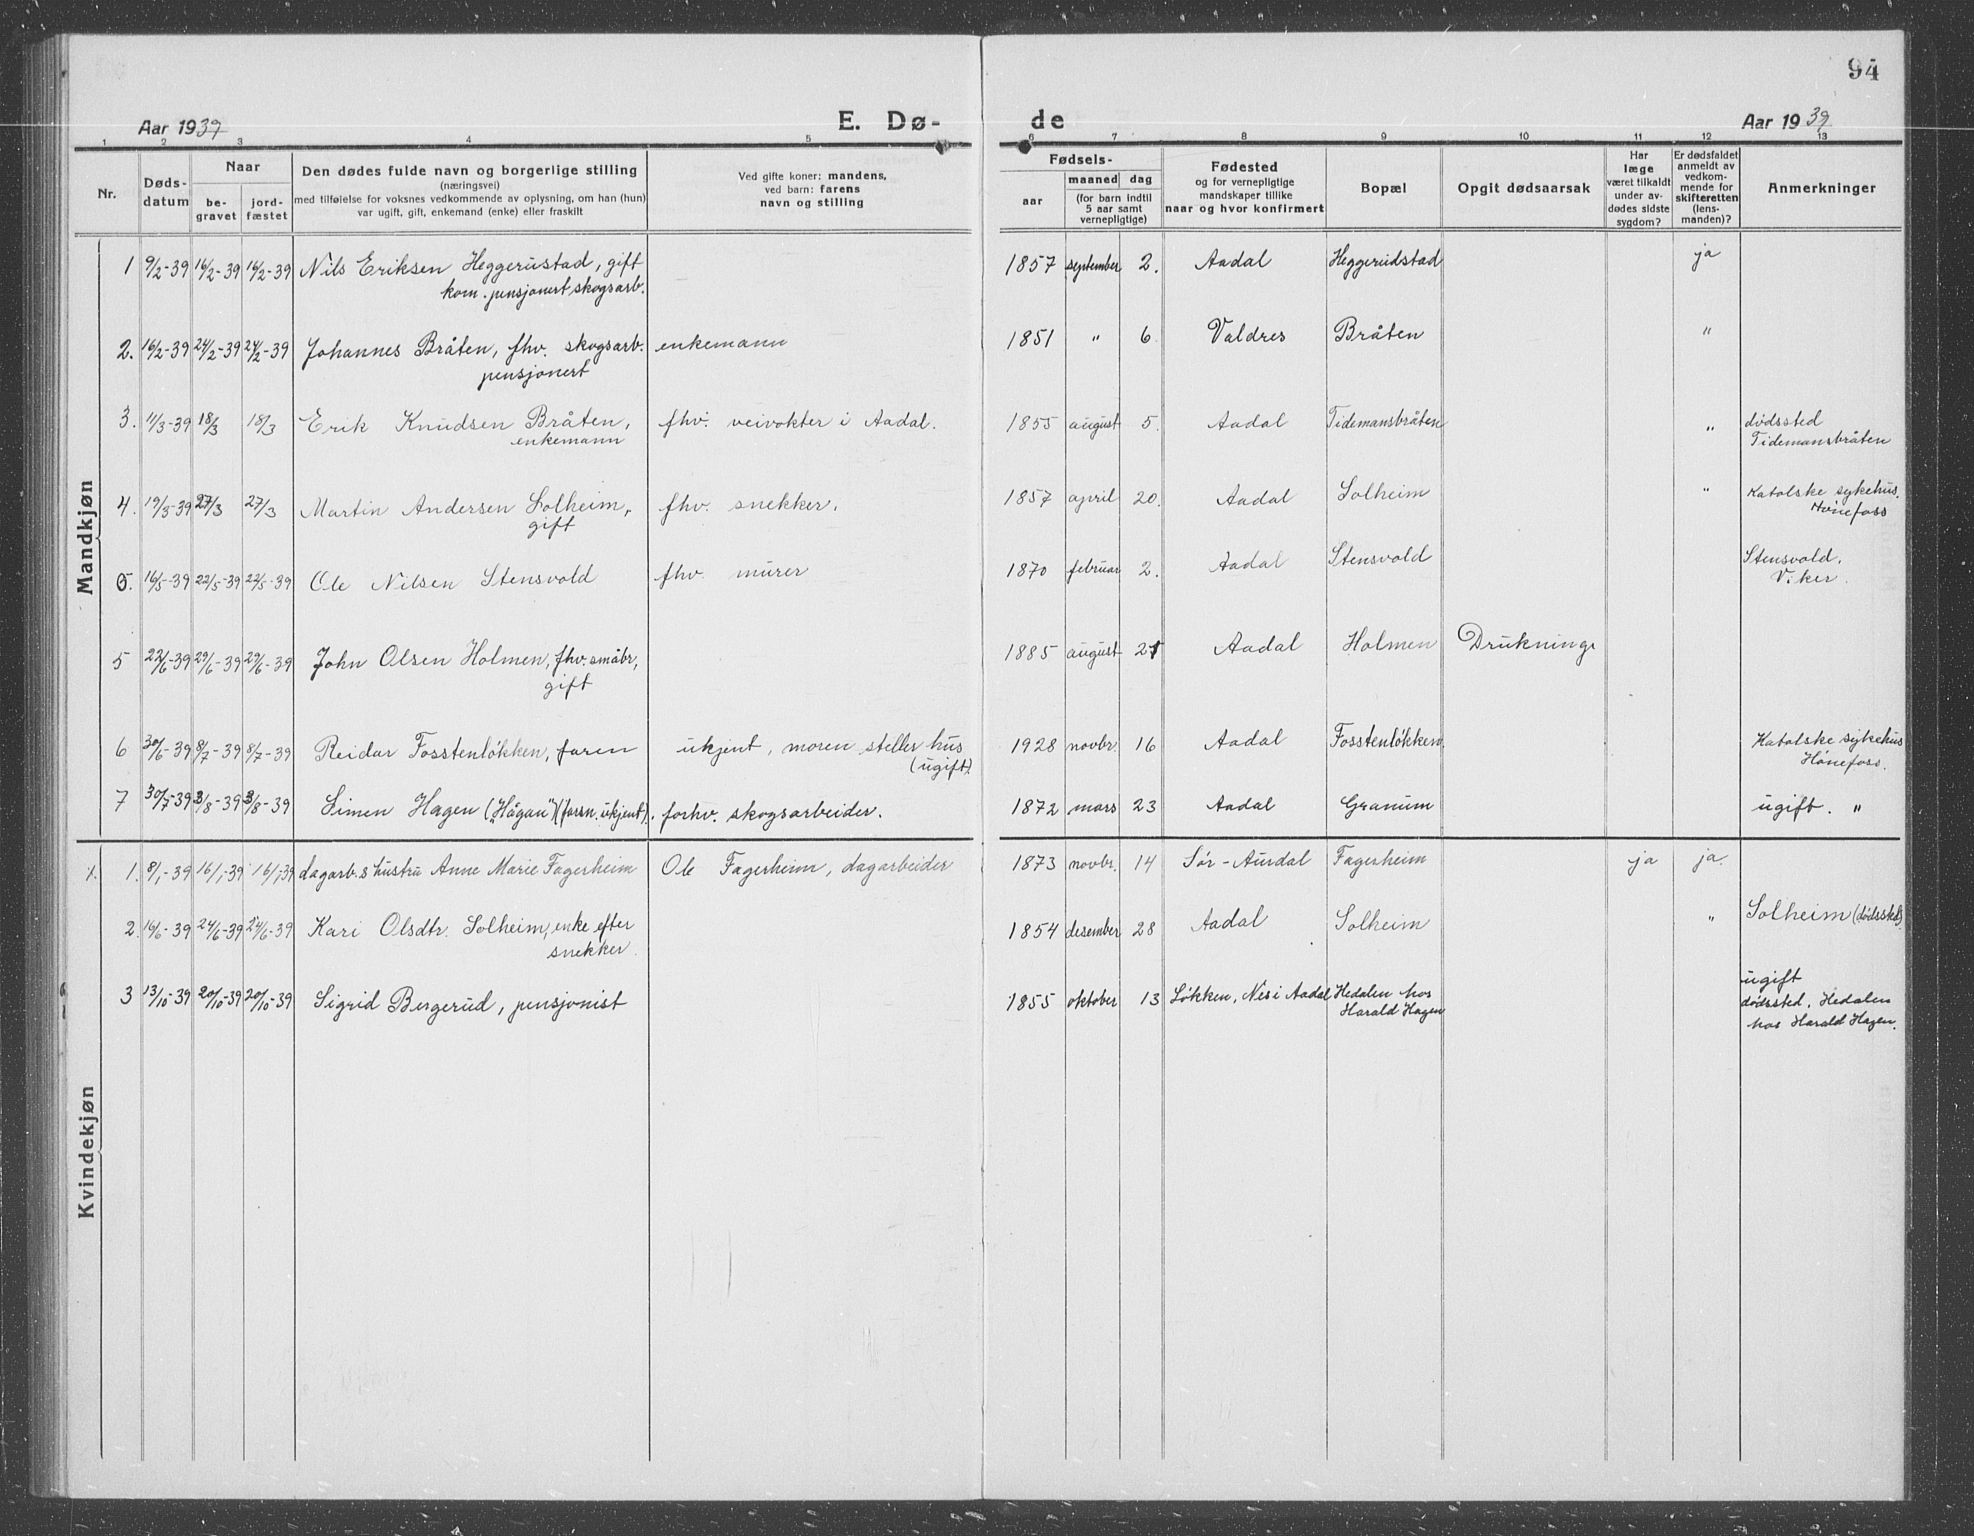 94
Aar 1939 E. Dø- de Aar 1939
1 2 3 4 5 6 7 8 9 10 11 12 13
Nr.
Døds-
datum
Naar
be-
gravet
jord-
fæstet
Den dødes fulde navn og borgerlige stilling
(næringsvei)
med tilføielse for voksnes vedkommende av oplysning, om han (hun)
var ugift, gift, enkemand (enke) eller fraskilt
Ved gifte koner: mandens,
ved barn: farens
navn og stilling
Fødsels-
aar
maaned dag
(for barn indtil
5 aar samt
vernepligtige)
Fødested
og for vernepligtige
mandskaper tillike
naar og hvor konfirmert
Bopæl
Opgit dødsaarsak
Har
læge
været tilkaldt
under av-
dødes sidste
sygdom?
Er dødsfaldet
anmeldt av
vedkom-
mende for
skifteretten
(lens-
manden)?
Anmerkninger
Mandkjøn
1 9/2-39 16/2-39 16/2-39 Nils Eriksen Heggerustad, gift 1857 september 2. Aadal Heggerudstad ja
kom. pensjonert skogsarb.
2. 16/2-39 24/2-39 24/2-39 Johannes Bråten, fhv. skogsarb. enkemann 1851 " 6 Valdres Bråten "
pensjonert
3. 11/3-39 18/3 18/3 Erik Knudsen Bråten, fhv. veivokter i Aadal. 1855 august 5. Aadal Tidemansbråten " dødssted
enkemann Tidemansbråten
4. 19/3-39 27/3 27/3 Martin Andersen Solheim, fhv. snekker. 1857 april 20. Aadal Solheim " Katolske sykehus.
gift Hønefoss
5. 16/5-39 22/5-39 22/5-39 Ole Nilsen Stensvold fhv. murer 1870 februar 2. Aadal Stensvold Stensvold.
Viker.
5 22/6-39 29/6-39 29/6-39 John Olsen Holmen, fhv. småbr, 1885 august 21 Aadal Holmen Drukning
gift
6 30/6-39 8/7-39 8/7-39 Reidar Fosstenløkken, faren ukjent, moren steller hus 1928 novbr. 16 Aadal Fosstenløkken. Katolske sykehus
(ugift) Hønefoss.
7 30/7-39 3/8-39 3/8-39 Simen Hagen ("Hågan") (foren. ukjent). forhv. skogsarbeider. 1872 mars 23 Aadal Granum ugift. "
Kvindekjøn
1. 8/1-39 16/1-39 16/1-39 dagarb.s hustru Anne Marie Fagerheim Ole Fagerheim, dagarbeider 1873 novbr. 14 Sør-Aurdal Fagerheim ja ja.
2. 16/6-39 24/6-39 24/6-39 Kari Olsdtr. Solheim, enke efter 1854 desember 28 Aadal Solheim " Solheim (dødssted)
snekker.
3 13/10-39 20/10-39 20/10-39 Sigrid Bergerud, pensjonist 1855 oktober 13 Løkken, Nes i Aadal Hedalen hos
Harald Hagen
ugift
dødssted, Hedalen
hos Harald Hagen.